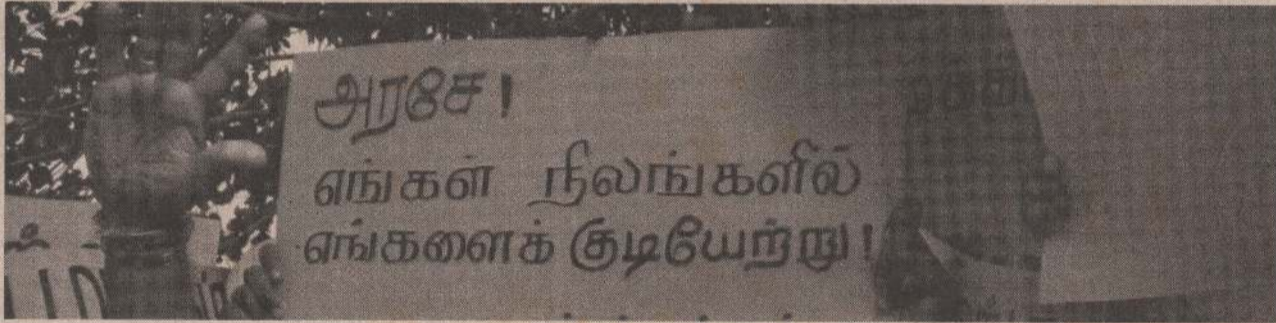 அரசே!
எங்கள் நிலங்களில்
எங்களைக் குடியேற்று!